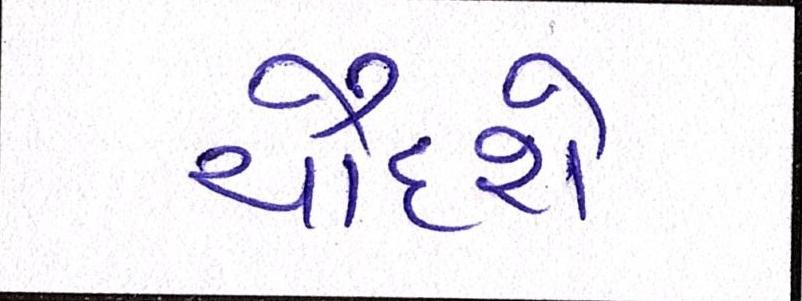 ચૌદશે